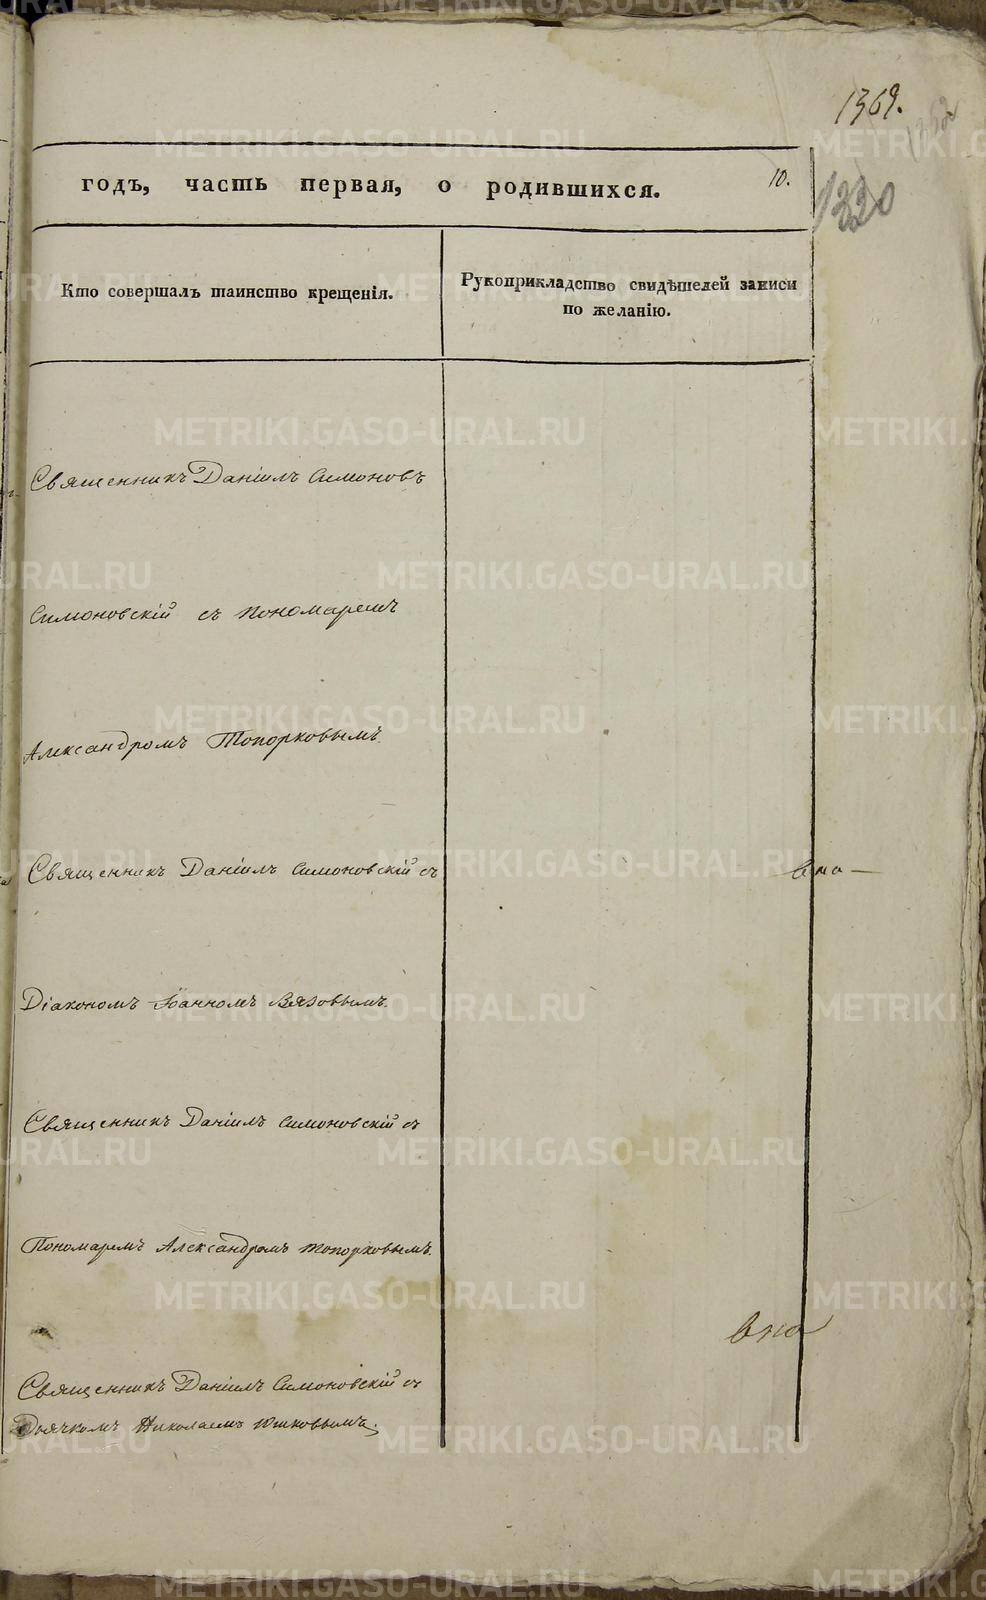 1369.
1320
годъ, часть первая, о родившихся. 10.
Кто совершалъ таинство крещенія.
Рукоприкладство свидѣтелей записи
по желанію.
Священникъ Даніилъ Симоновъ
Симоновскій съ пономаремъ
Александромъ Топорковымъ
Священникъ Даніилъ Симоновскій съ
Діакономъ Іоанномъ Вязовымъ.
Священникъ Даніилъ Симоновскій съ
Пономаремъ Александромъ Топорковымъ.
Священникъ Даніилъ Симоновскій съ
Дьячкомъ Николаемъ Юшковымъ.
METRIKI.GASO-URAL.RU